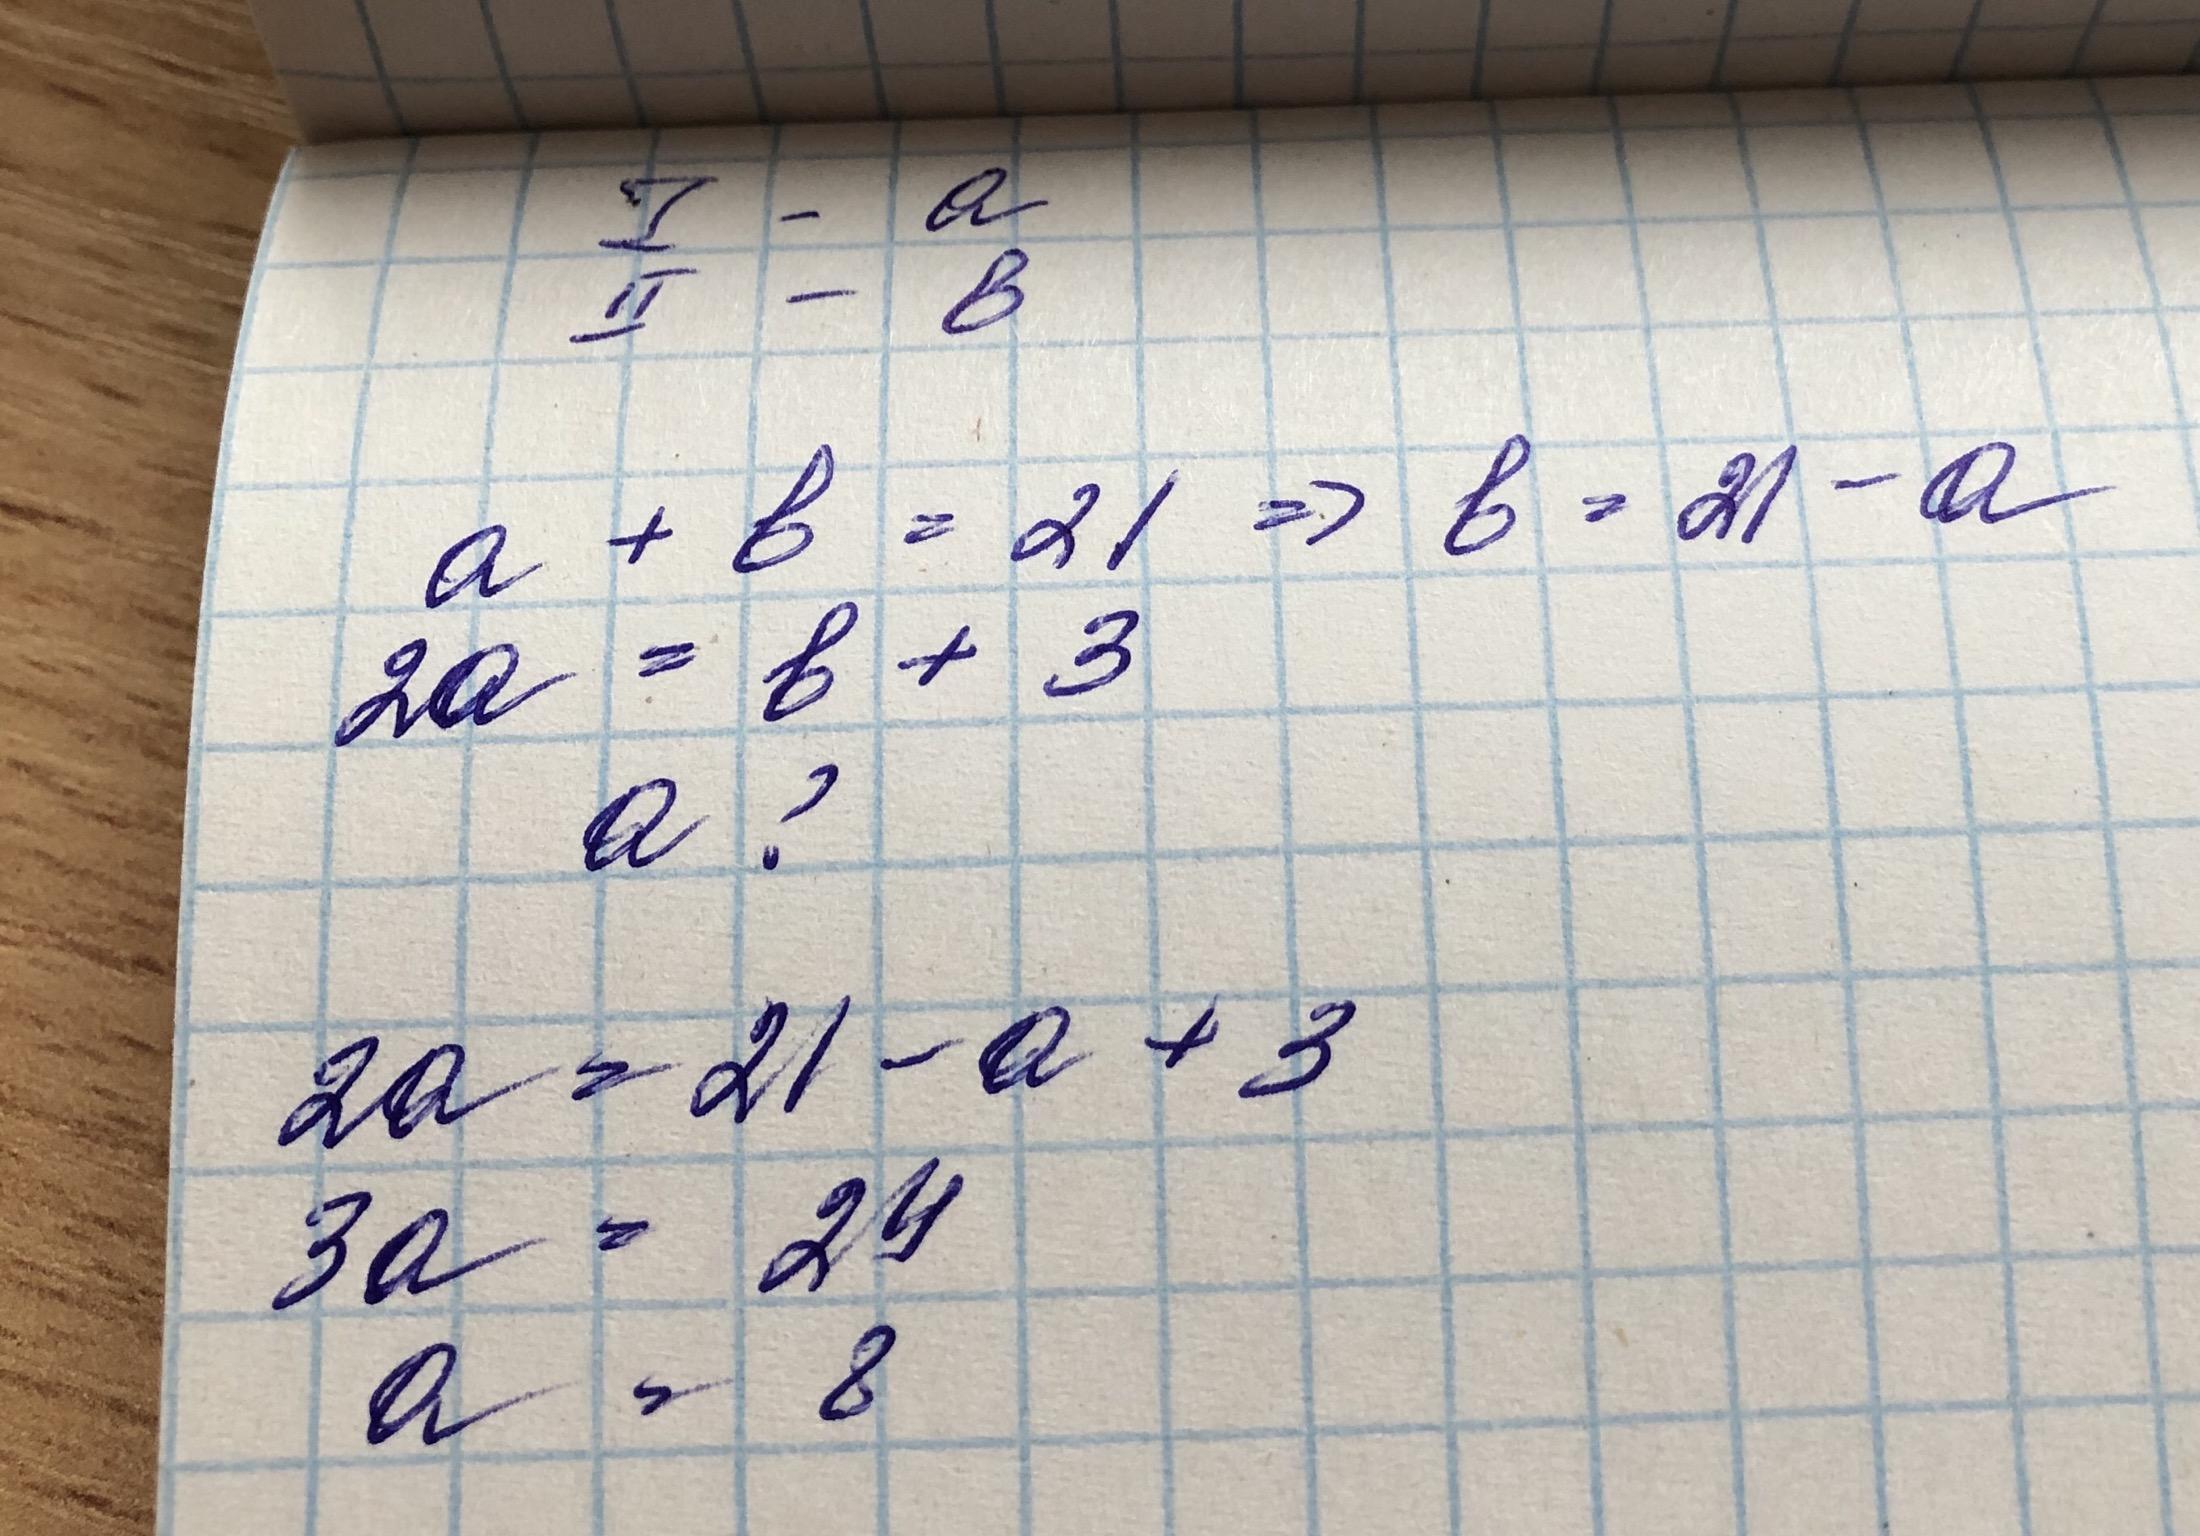 I - a
II - в
a + b = 21 => b = 21 - a
2a = b + 3
a ?
2a = 21 - a + 3
3a = 24
a = 8